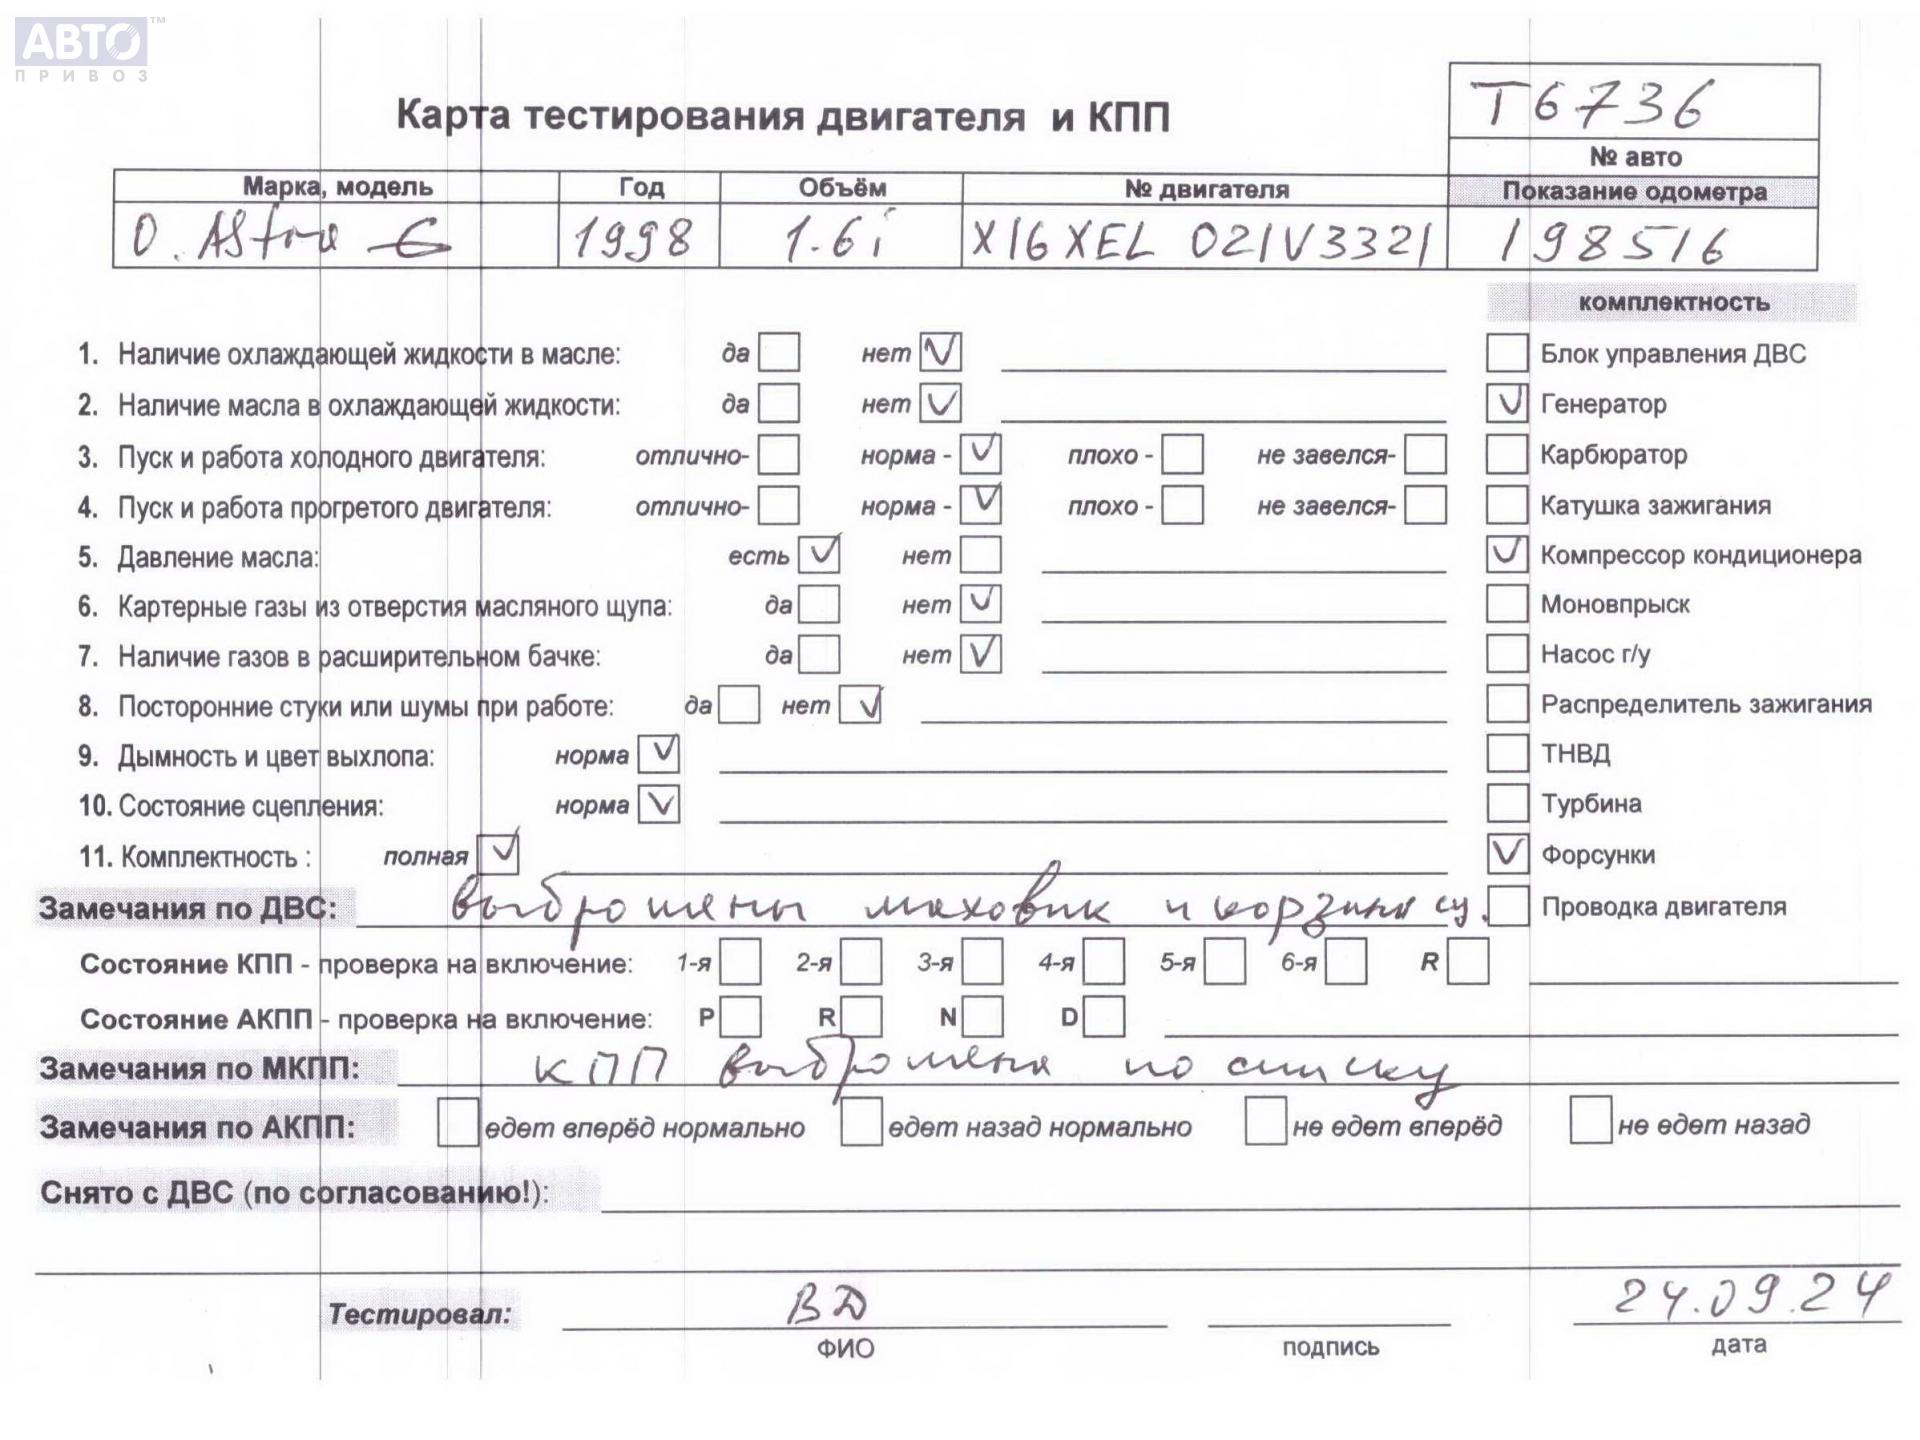 АВТО™
ПРИВОЗ
Карта тестирования двигателя и КПП
Т6736
№ авто
Марка, модель Год Объём № двигателя Показание одометра
O. Astra G 1998 1.6i X16XEL 021V3321 198516
комплектность
1. Наличие охлаждающей жидкости в масле: да нет V Блок управления ДВС
2. Наличие масла в охлаждающей жидкости: да нет V V Генератор
3. Пуск и работа холодного двигателя: отлично- норма - V плохо - не завелся- Карбюратор
4. Пуск и работа прогретого двигателя: отлично- норма - V плохо - не завелся- Катушка зажигания
5. Давление масла: есть V нет V Компрессор кондиционера
6. Картерные газы из отверстия масляного щупа: да нет V Моновпрыск
7. Наличие газов в расширительном бачке: да нет V Насос г/у
8. Посторонние стуки или шумы при работе: да нет V Распределитель зажигания
9. Дымность и цвет выхлопа: норма V ТНВД
10. Состояние сцепления: норма V Турбина
11. Комплектность : полная V V Форсунки
Замечания по ДВС: выброшены маховик и корзина сц. Проводка двигателя
Состояние КПП - проверка на включение: 1-я 2-я 3-я 4-я 5-я 6-я R
Состояние АКПП - проверка на включение: P R N D
Замечания по МКПП: КПП выброшена по списку
Замечания по АКПП: едет вперёд нормально едет назад нормально не едет вперёд не едет назад
Снято с ДВС (по согласованию!):
Тестировал: ВД 24.09.24
ФИО подпись дата